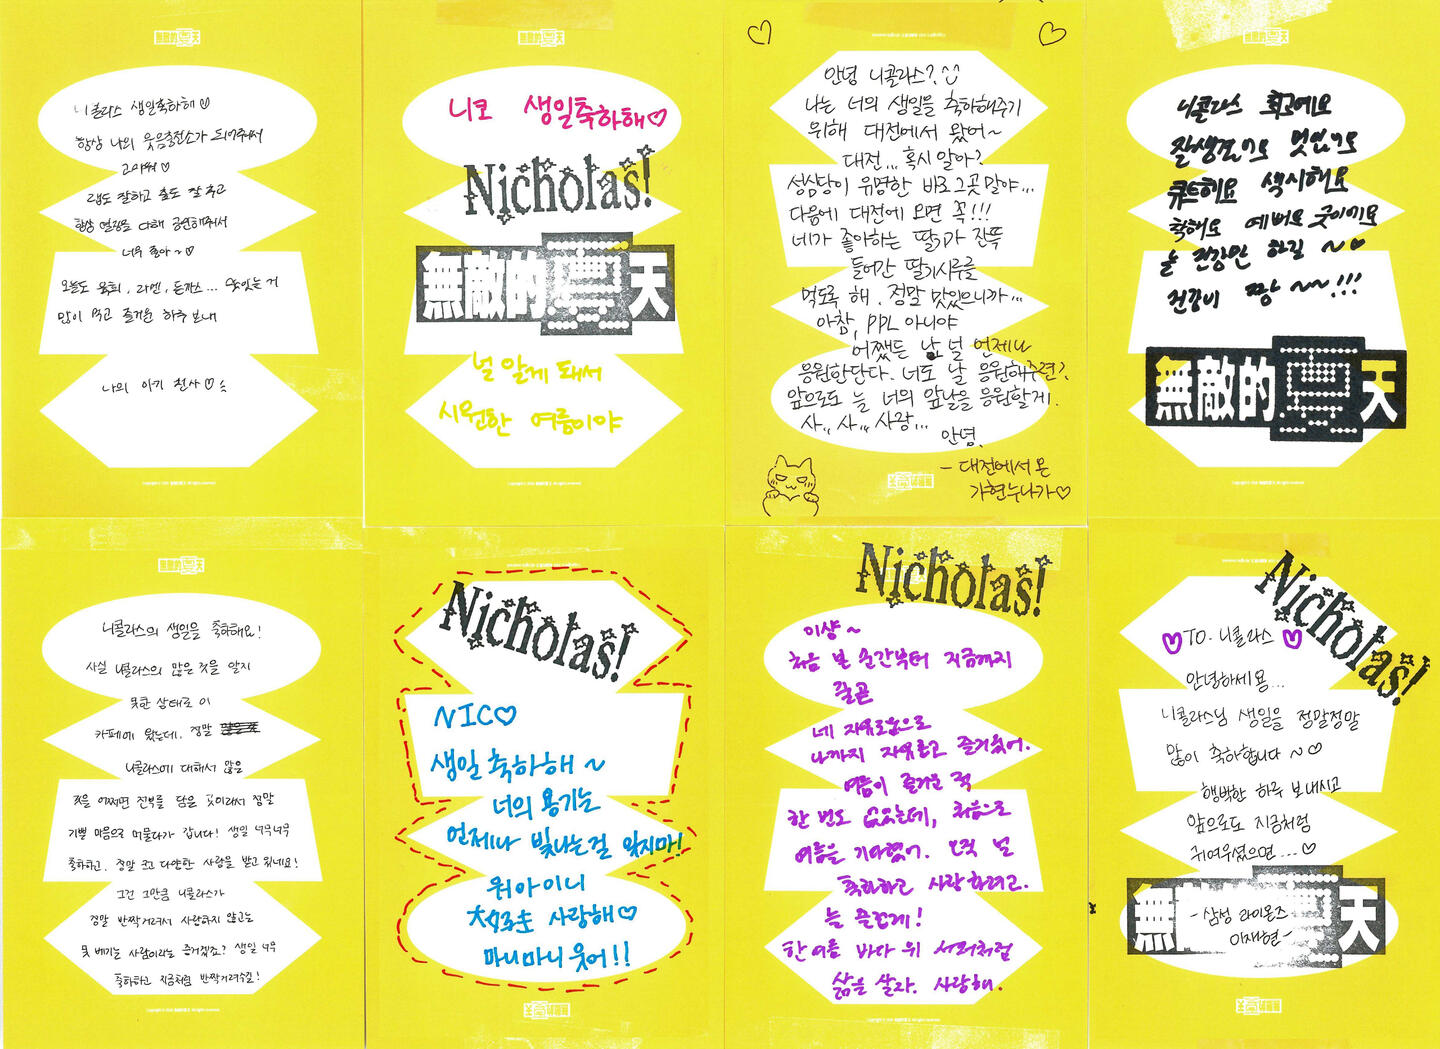 니콜라스 생일축하해♡
항상 나의 웃음충전소가 되어줘서
고마워♡
랩도 잘하고 춤도 잘 추고
항상 열정을 다해 공연해줘서
너무 좋아~♡
오늘도 육회, 라멘, 돈까스... 맛있는 거
많이 먹고 즐거운 하루 보내
나의 아기 천사♡
니코 생일축하해♡
Nicholas!
無敵的夏天
널 알게 돼서
시원한 여름이야
안녕 니콜라스?
나는 너의 생일을 축하해주기
위해 대전에서 왔어~
대전... 혹시 알아?
성심당이 유명한 바로 그곳 말야...
다음에 대전에 오면 꼭!!!
네가 좋아하는 딸기가 잔뜩
들어간 딸기시루를
먹도록 해. 정말 맛있으니까...
아참, PPL 아니야
어쨌든 난 널 언제나
응원한단다. 너도 날 응원해주련?
앞으로도 늘 너의 앞날을 응원할게.
사.. 사.. 사랑...
안녕.
- 대전에서 온
가현누나가♡
니콜라스 최고에요
잘생겼기도 멋있기도
큐트해요 섹시해요
착해요 예뻐요 귀이기도
늘 건강만 하길 ~♥
건강이 짱 ~~!!!
無敵的夏天
니콜라스의 생일을 축하해요!
사실 니콜라스의 많은 것을 알지
못한 상태로 이
카페에 왔는데, 정말
니콜라스에 대해서 많은
것을 어쩌면 전부를 담은 곳이라서 정말
기쁜 마음으로 머물다가 갑니다! 생일 너무너무
축하하고, 정말 크고 다양한 사랑을 받고 있네요!
그건 그만큼 니콜라스가
정말 반짝거려서 사랑하지 않고는
못 배기는 사람이라는 증거겠죠? 생일 너무
축하하고 지금처럼 반짝거려주길!
Nicholas!
NIC♡
생일 축하해~
너의 용기는
언제나 빛나는걸 잊지마!
워아이니
사랑해♡
마니마니 웃어!!
Nicholas!
이샹~
처음 본 순간부터 지금까지
줄곧
네 자유로움으로
나까지 자유롭고 즐거웠어.
여름이 즐거운 적
한 번도 없었는데, 처음으로
여름을 기다렸어. 오직 널
축하하고 사랑하려고.
늘 즐겁게!
한여름 바다 위 서퍼처럼
삶을 살자. 사랑해.
Nicholas!
♡TO. 니콜라스♡
안녕하세용...
니콜라스님 생일을 정말정말
많이 축하합니다~♡
행복한 하루 보내시고
앞으로도 지금처럼
귀여우셨으면...♡
無
天
-삼성 라이온즈
이재현-